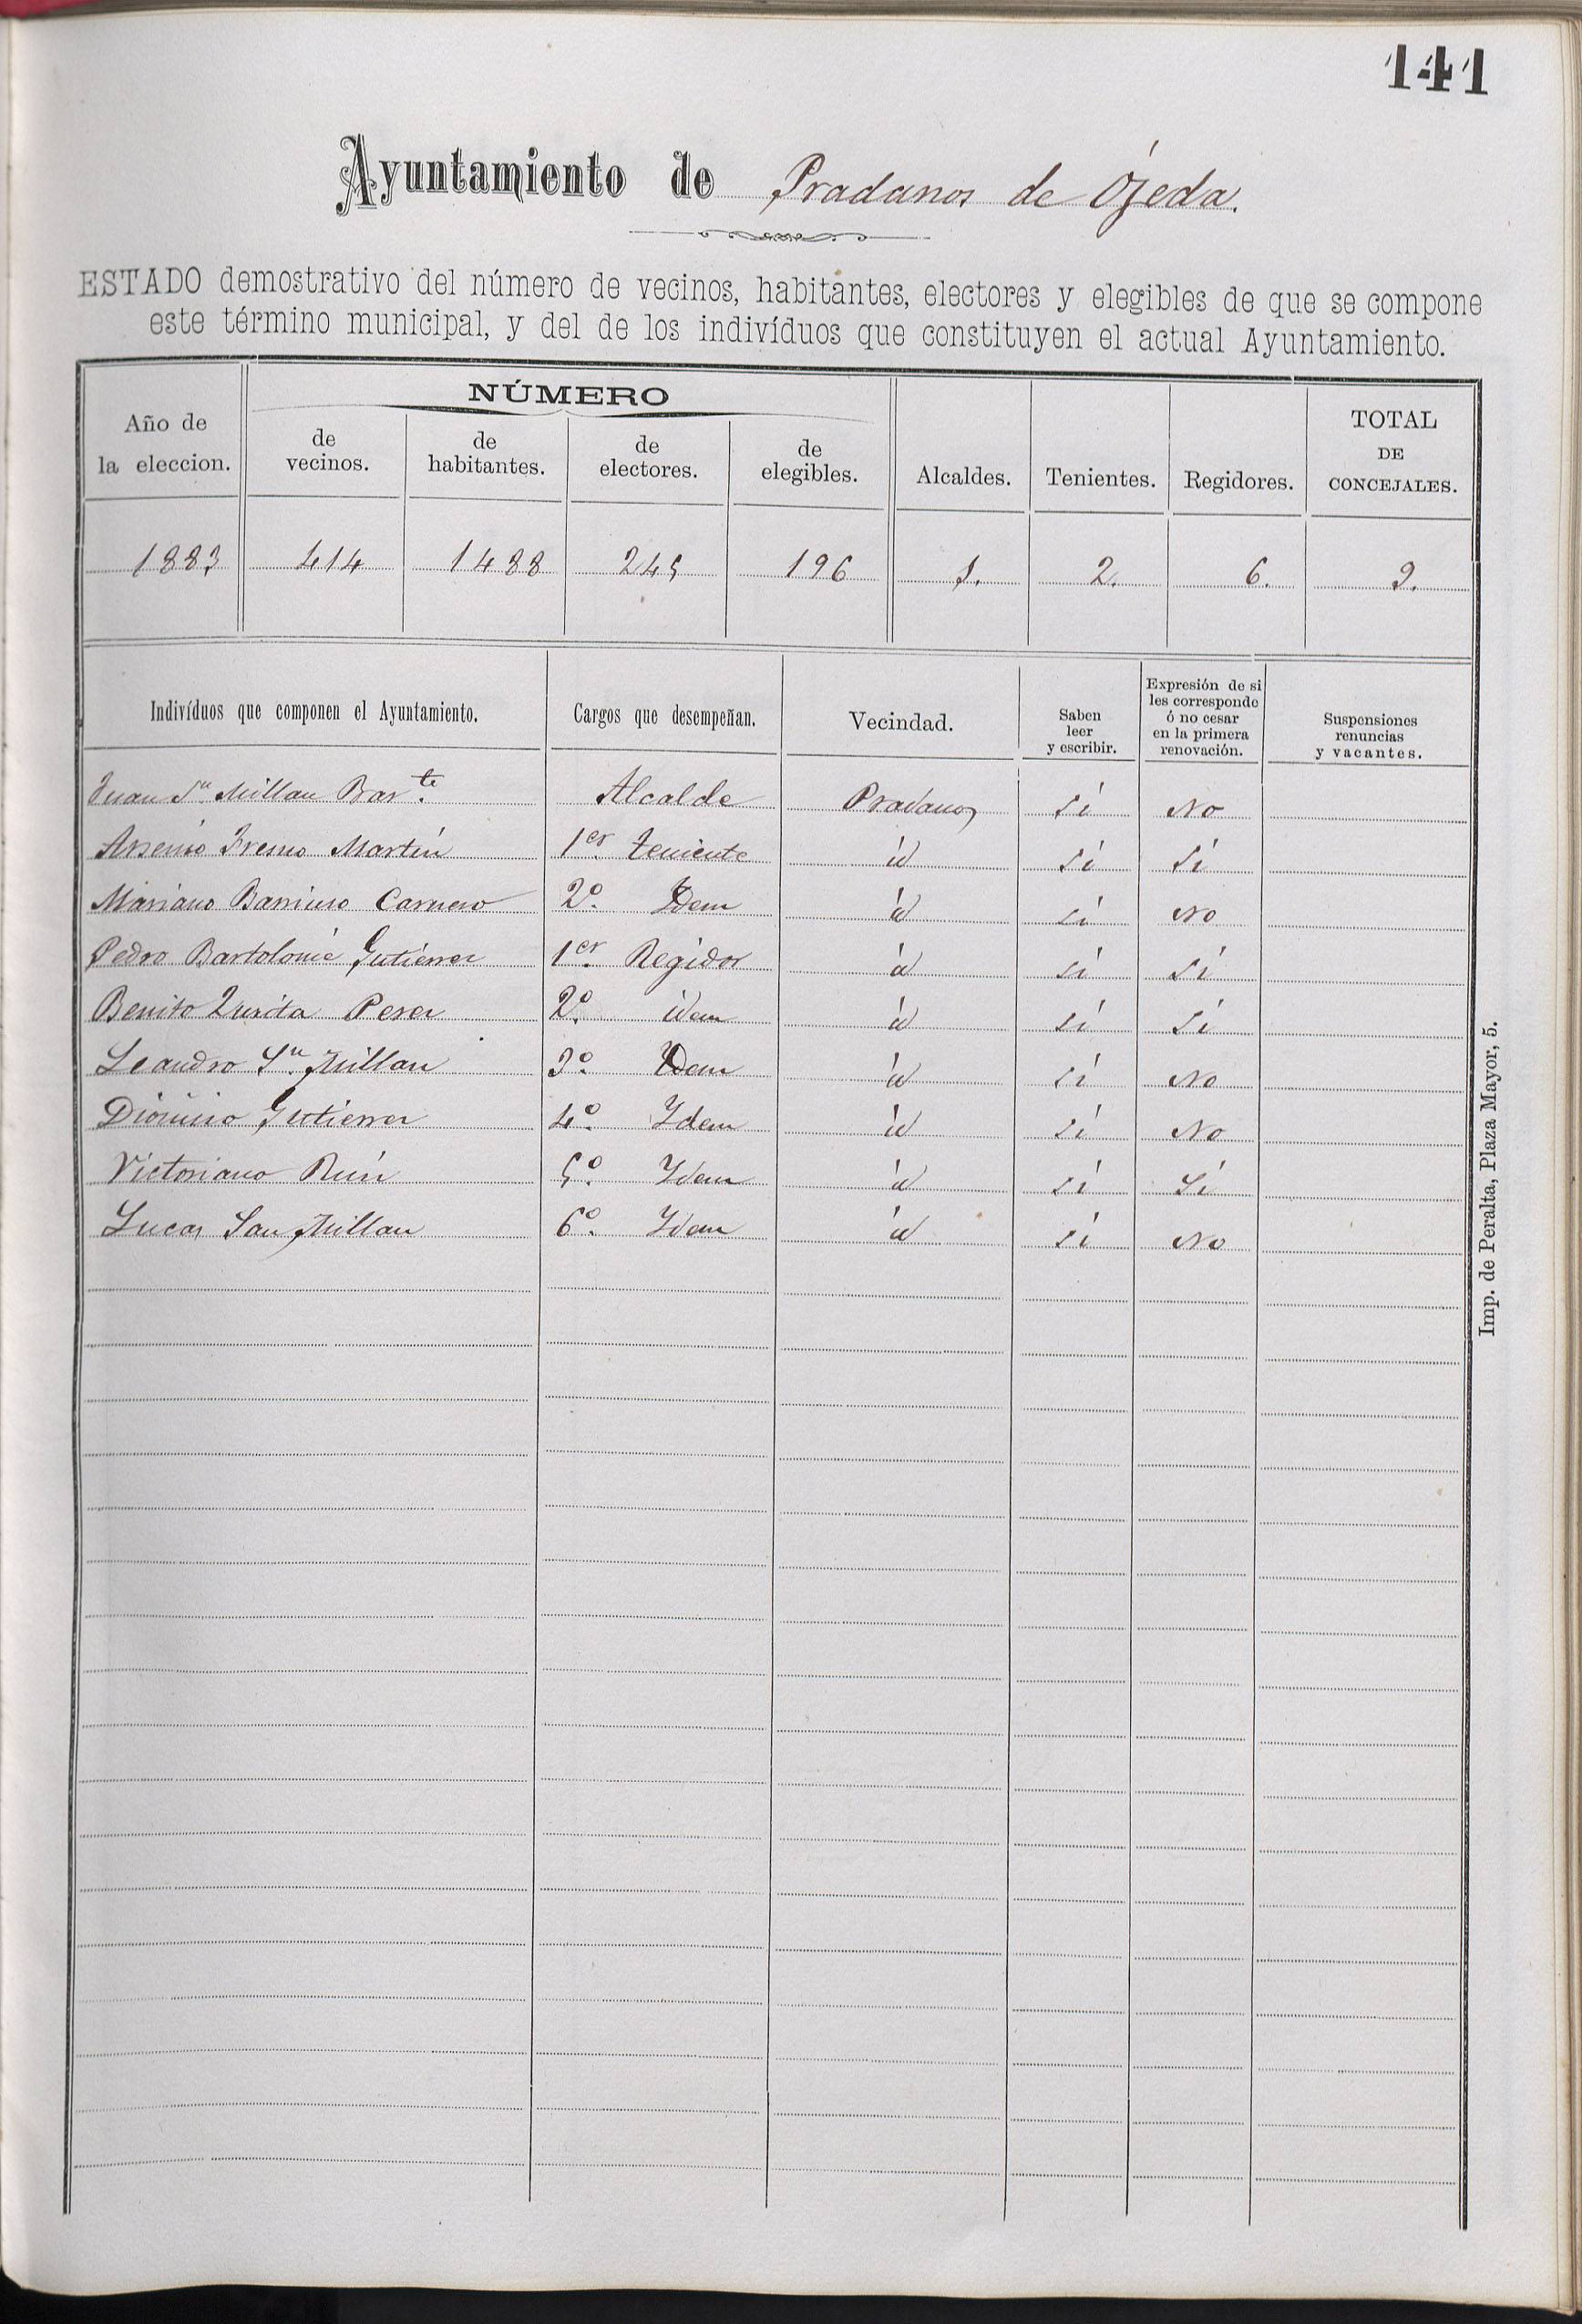 141
Ayuntamiento de Pradanos de Ojeda.
ESTADO demostrativo del número de vecinos, habitantes, electores y elegibles de que se compone
este término municipal, y del de los indivíduos que constituyen el actual Ayuntamiento.
Año de la eleccion. NÚMERO de vecinos. de habitantes. de electores. de elegibles. Alcaldes. Tenientes. Regidores. TOTAL DE CONCEJALES.
1883 414 1488 245 196 1. 2. 6. 9.
Indivíduos que componen el Ayuntamiento. Cargos que desempeñan. Vecindad. Saben leer y escribir. Expresión de si les corresponde ó no cesar en la primera renovación. Suspensiones renuncias y vacantes.
Juan Sn. Millan Barte. Alcalde Pradanos Sí No
Arsenio Martín 1er. Teniente id Sí Sí
Mariano Barriuso Carnero 2º. Idem id Sí No
Pedro Bartolomé Gutierrez 1er. Regidor id Sí Sí
Benito Zurita Perez 2º. idem id Sí Sí
Leandro Sn. Millan 3º. Idem id Sí No
Dionisio Gutierrez 4º. Idem id Sí No
Victoriano Ruiz 5º. Idem id Sí Sí
Lucas San Millan 6º. Idem id Sí No
Imp. de Peralta, Plaza Mayor, 5.